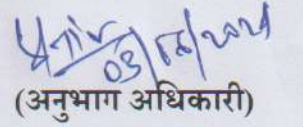 03/06/2021
(अनुभाग अधिकारी)